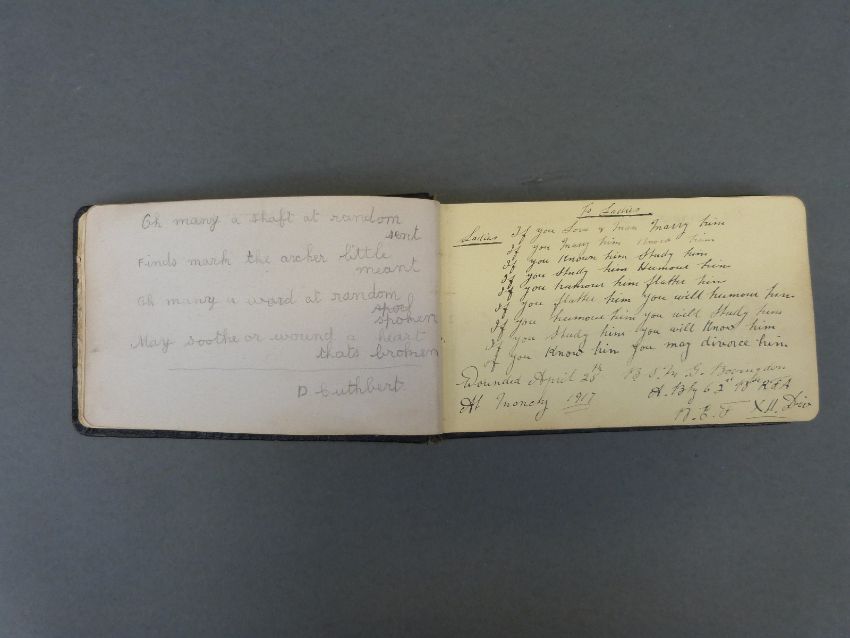 Oh many a shaft at random
sent
Finds mark the archer little
meant
Oh many a word at random
spoken
May soothe or wound a heart
thats broken
D Cuthbert
To Ladies
Ladies If you Love a Man Marry him
If you Marry him Know him
If you Known him Study him
If you Study him Humour him
If you humour him flatter him
If you flatter him you will humour him
If you humour him you will Study him
If you Study him you will Know him
If you Know him you may divorce him
Wounded April 25th B.S.M. G. Bovingdon
At Monchy 1917 A. Bty 62nd Bde R.F.A
B.E.F XII Div